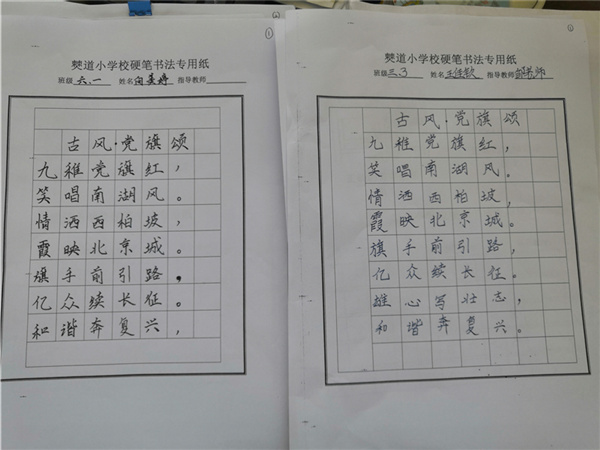 僰道小学校硬笔书法专用纸
班级 六.一 姓名 向孟婷 指导教师
古风·党旗颂
九稚党旗红，
笑唱南湖风。
情洒西柏坡，
霞映北京城。
旗手前引路.
亿众续长征。
和谐奔复兴，
①
僰道小学校硬笔书法专用纸
班级 三.3 姓名 王佳歆 指导教师
古风·党旗颂
九稚党旗红，
笑唱南湖风。
情洒西柏坡，
霞映北京城。
旗手前引路，
亿众续长征。
雄心写壮志，
和谐奔复兴。